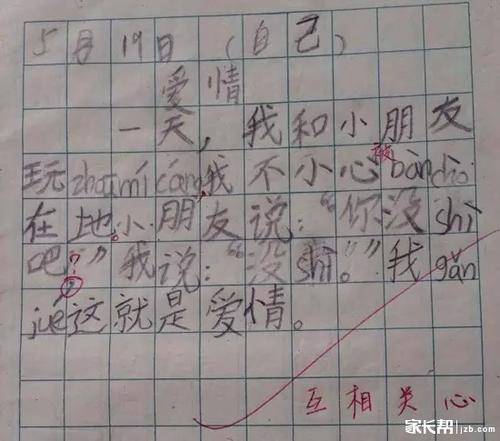 5月19日（自己）
爱情
一天，我和小朋友
玩zhuōmí cáng，我不小心被bàndǎo
在地。小朋友说：“你没shì
吧？”我说：“没shì。”我gǎn
jué这就是爱情。
互相关心
家长帮 jzb.com